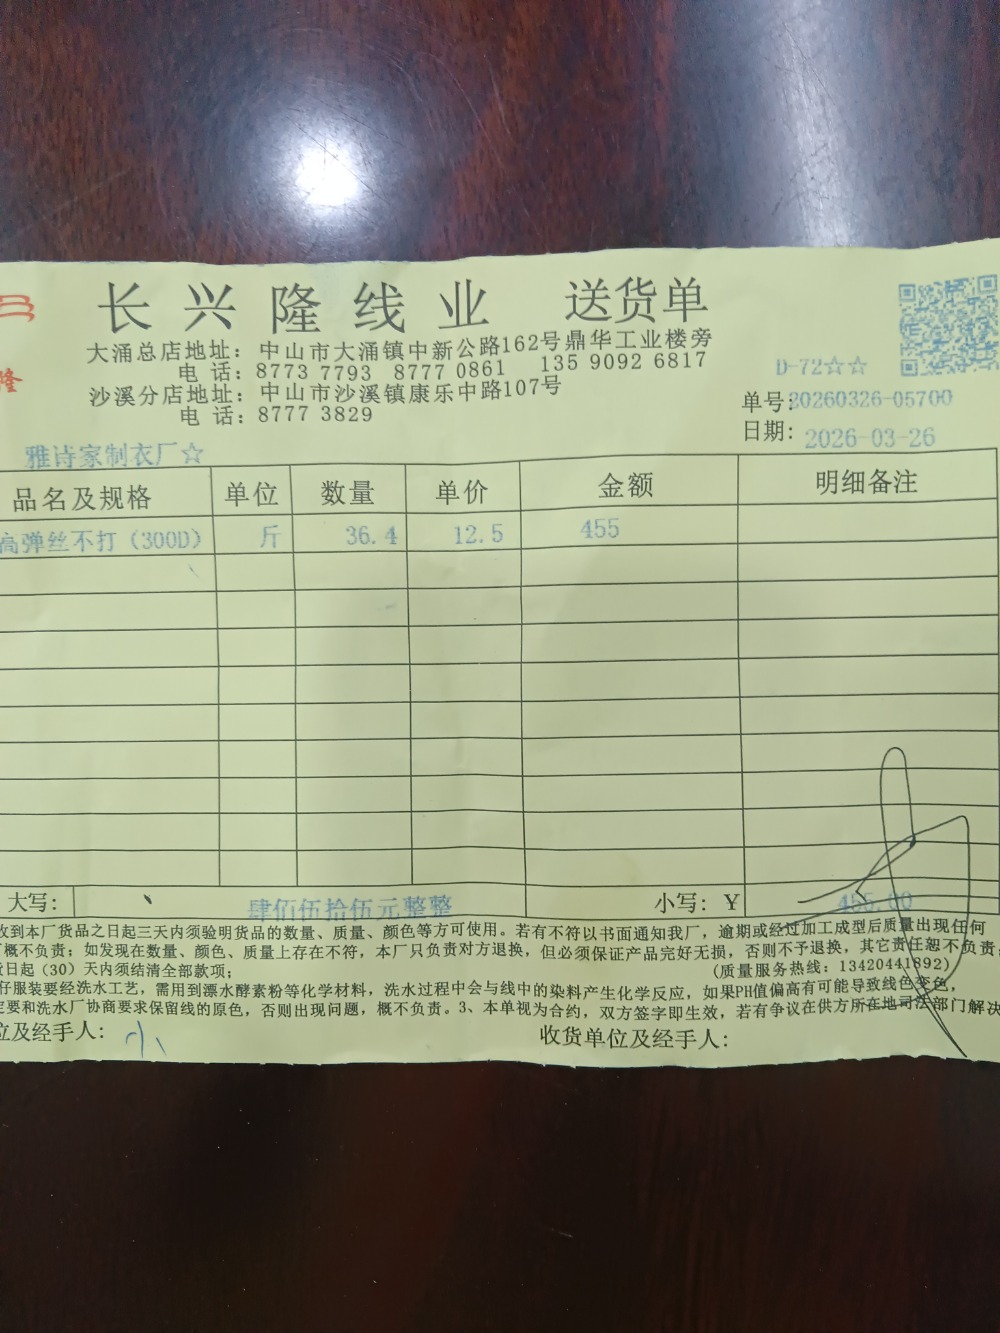 长兴隆线业 送货单
大涌总店地址：中山市大涌镇中新公路162号鼎华工业楼旁
电 话：8773 7793 8777 0861 135 9092 6817
沙溪分店地址：中山市沙溪镇康乐中路107号
电 话：8777 3829
隆
D-72☆☆
单号：20260326-05700
日期：2026-03-26
雅诗家制衣厂☆
品名及规格 单位 数量 单价 金额 明细备注
高弹丝不打（300D） 斤 36.4 12.5 455
大写： 肆佰伍拾伍元整整 小写：Y 455.00
收到本厂货品之日起三天内须验明货品的数量、质量、颜色等方可使用。若有不符以书面通知我厂，逾期或经过加工成型后质量出现任何
概不负责；如发现在数量、颜色、质量上存在不符，本厂只负责对方退换，但必须保证产品完好无损，否则不予退换，其它责任恕不负责；
日起（30）天内须结清全部款项； （质量服务热线：13420441892）
仔服装要经洗水工艺，需用到漂水酵素粉等化学材料，洗水过程中会与线中的染料产生化学反应，如果PH值偏高有可能导致线色变色，
定要和洗水厂协商要求保留线的原色，否则出现问题，概不负责。3、本单视为合约，双方签字即生效，若有争议在供方所在地司法部门解决
位及经手人： 收货单位及经手人：